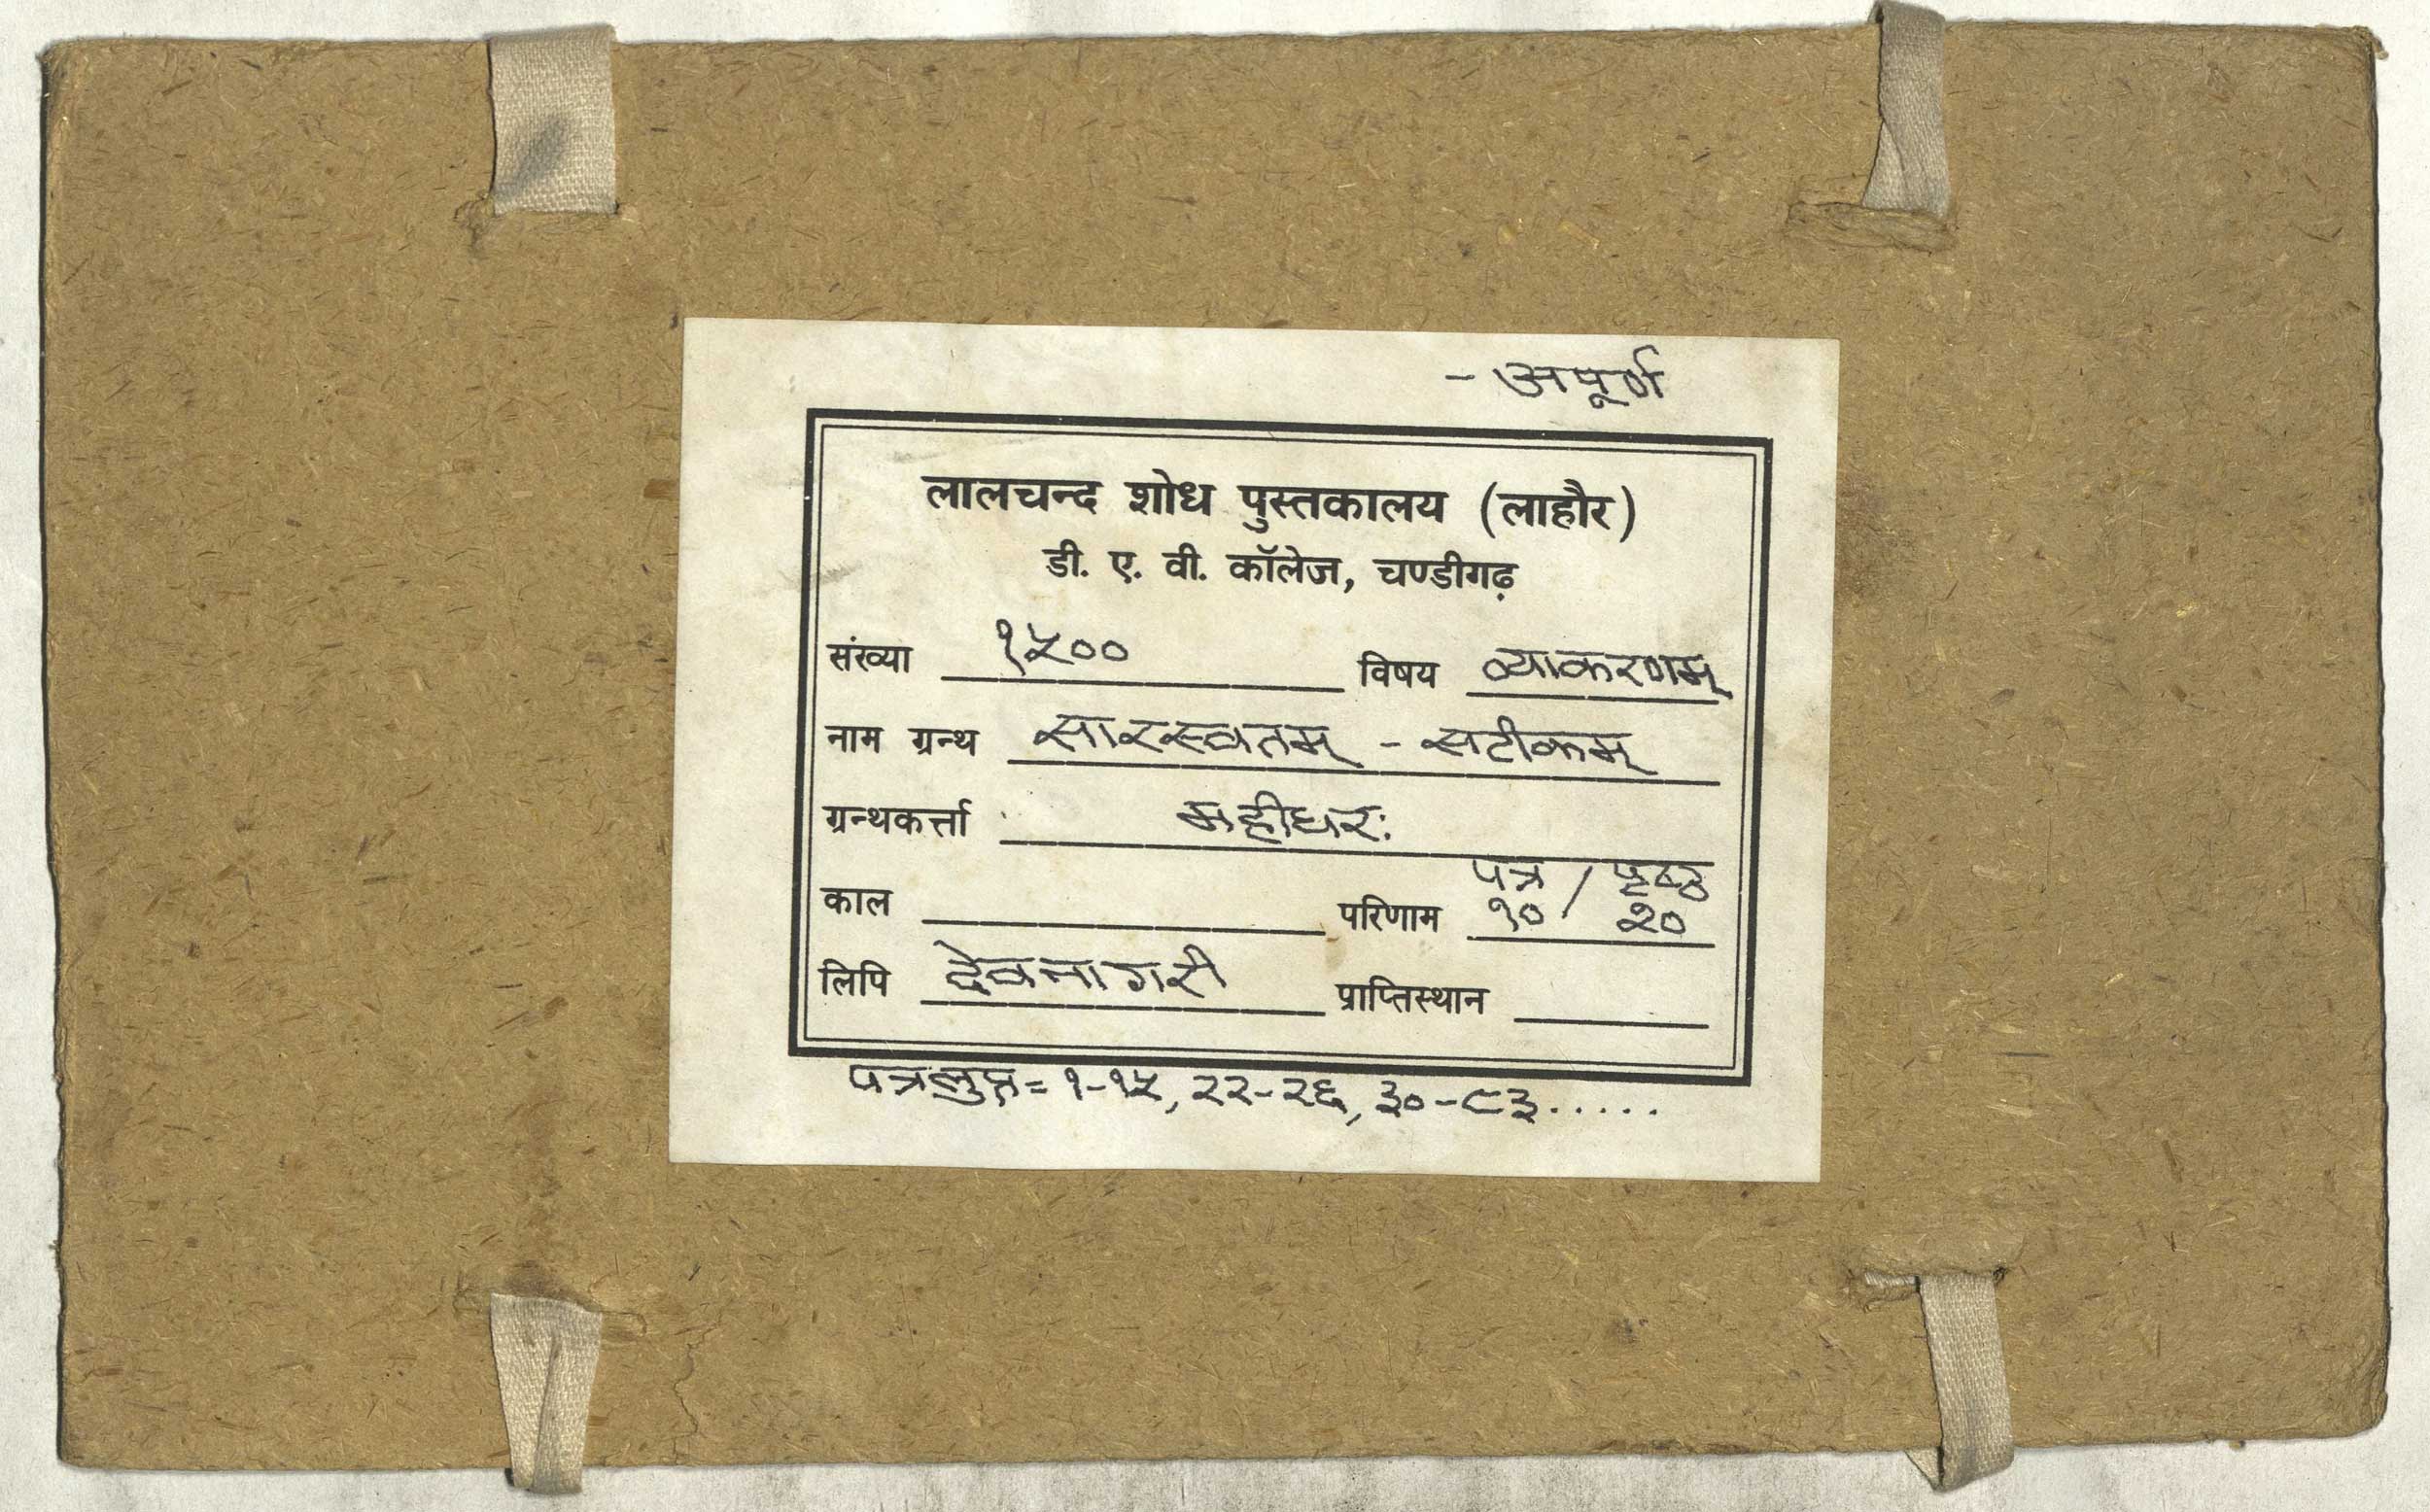 - अपूर्ण
लालचन्द शोध पुस्तकालय (लाहौर)
डी. ए. वी. कॉलेज, चण्डीगढ़
संख्या १५०० विषय व्याकरणम्
नाम ग्रन्थ सारस्वतम् - सटीकम्
ग्रन्थकर्त्ता महीधरः
पत्र / पृष्ठ
काल परिणाम १० / २०
लिपि देवनागरी प्राप्तिस्थान
पत्रलुप्त = १-१५, २२-२६, ३०-८३.....